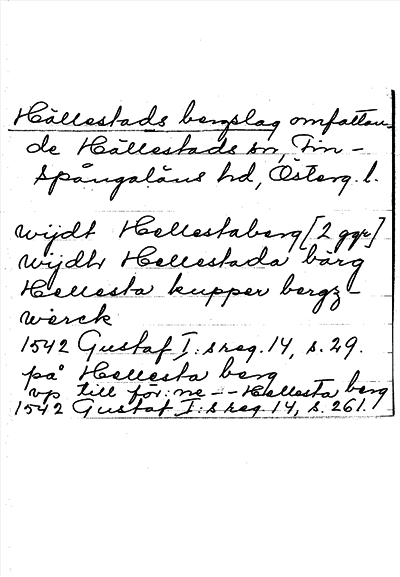 Hällestads bergslag omfattan-
de Hällestads sn, Fin-
spångaläns hd, Österg. l.
wijdt Hellestaberg [2 ggr]
wijdhr Hellestada bärg
Hellesta kupper bergz-
werck
1542 Gustaf I:s reg. 14, s. 29.
på Hellesta berg
vp till för:ne -- Hellesta berg
1542 Gustaf I:s reg. 14, s. 261.